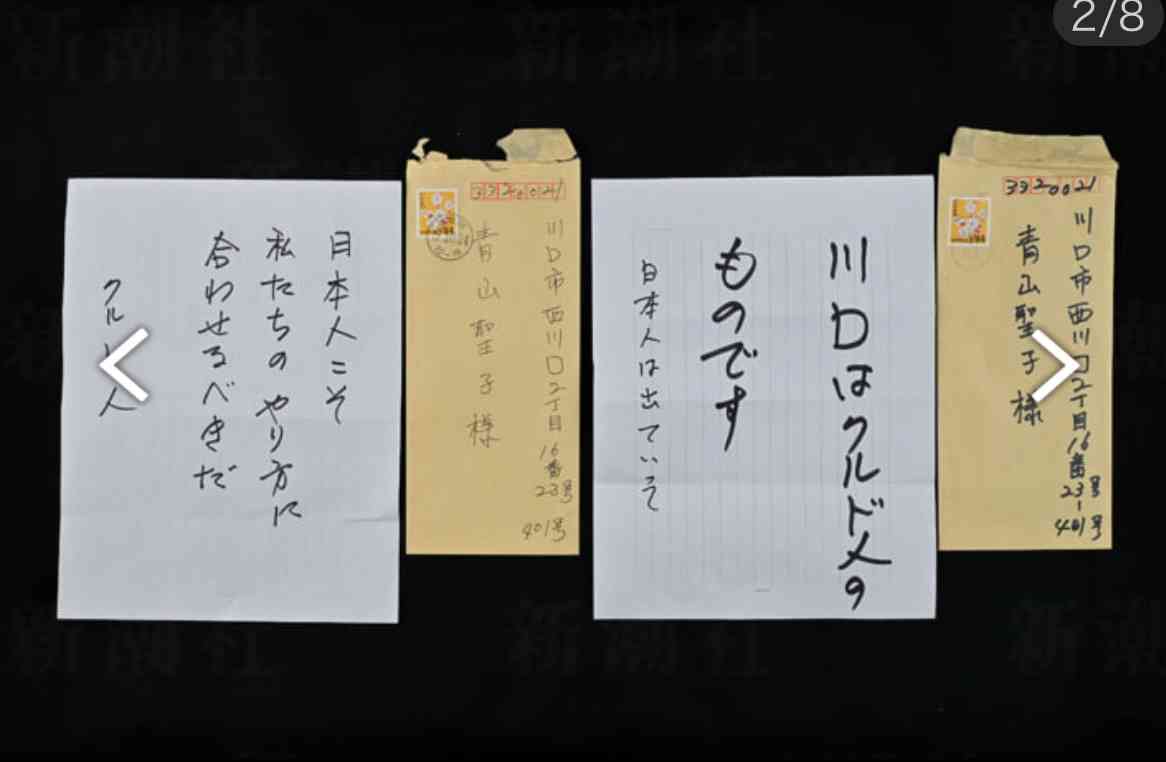 2/8
新潮社
日本人こそ
私たちの やり方に
合わせるべきだ
クルド人
3320021
川口市西川口2丁目16番23号 401号
青山聖子様
川口はクルド人の
ものです
日本人は出ていって
3320021
川口市西川口2丁目16番23号-401号
青山聖子様